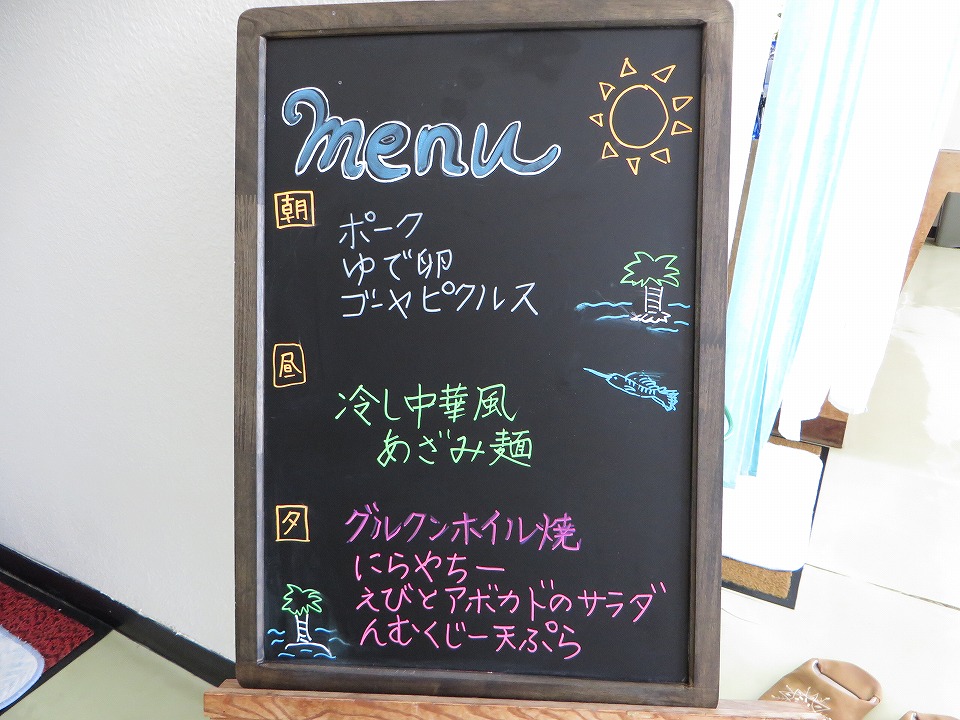 menu
朝
ポーク
ゆで卵
ゴーヤピクルス
昼
冷し中華風
あざみ麺
夕
グルクンホイル焼
にらやちー
えびとアボカドのサラダ
んむくじー天ぷら